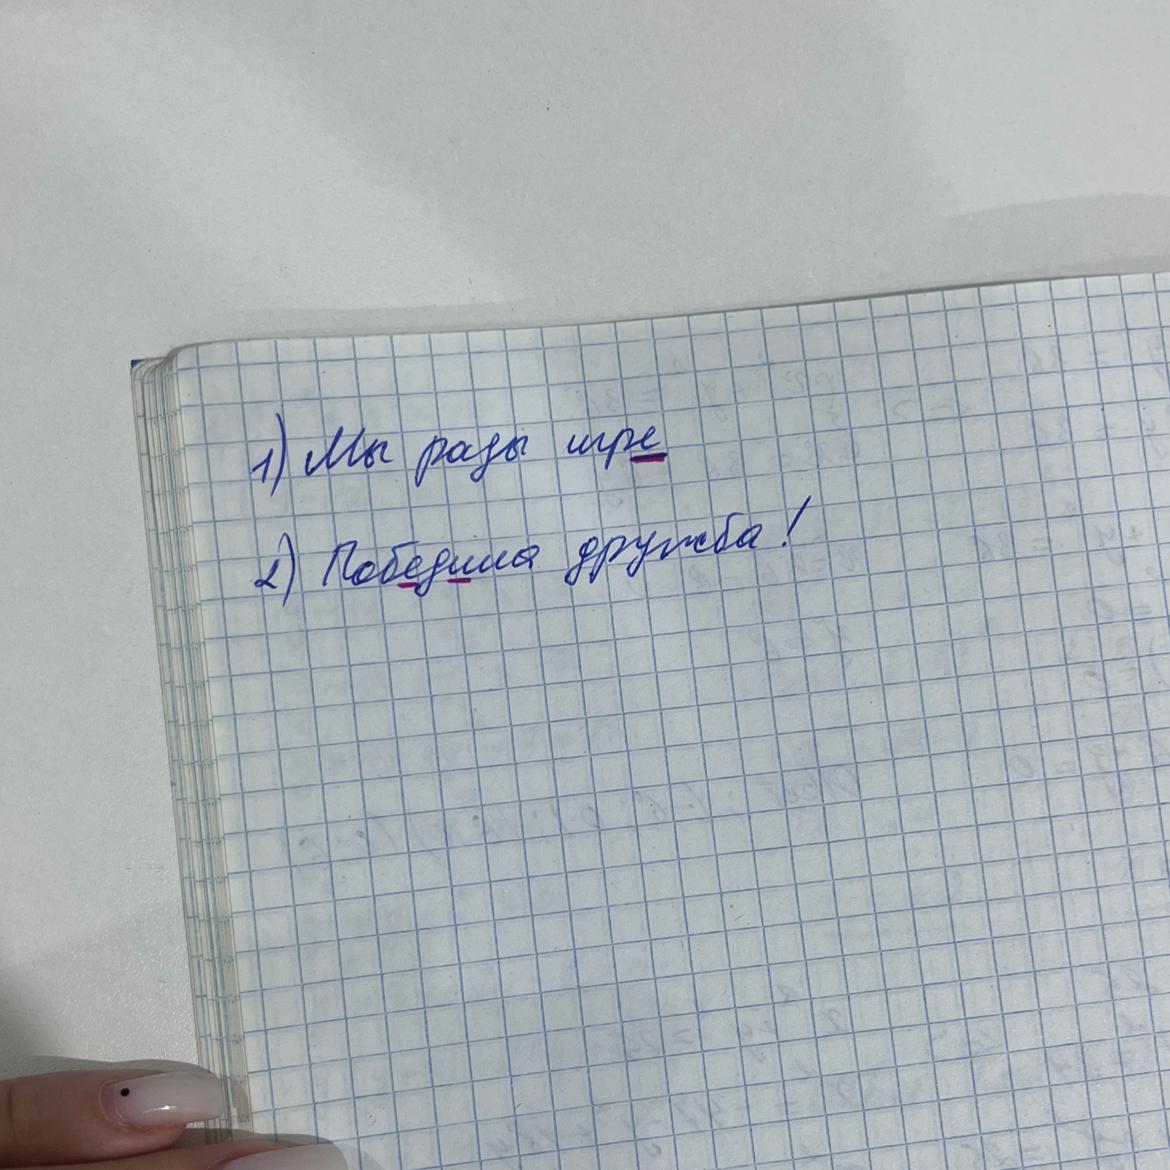 1) Мы рады игре
2) Победила дружба!